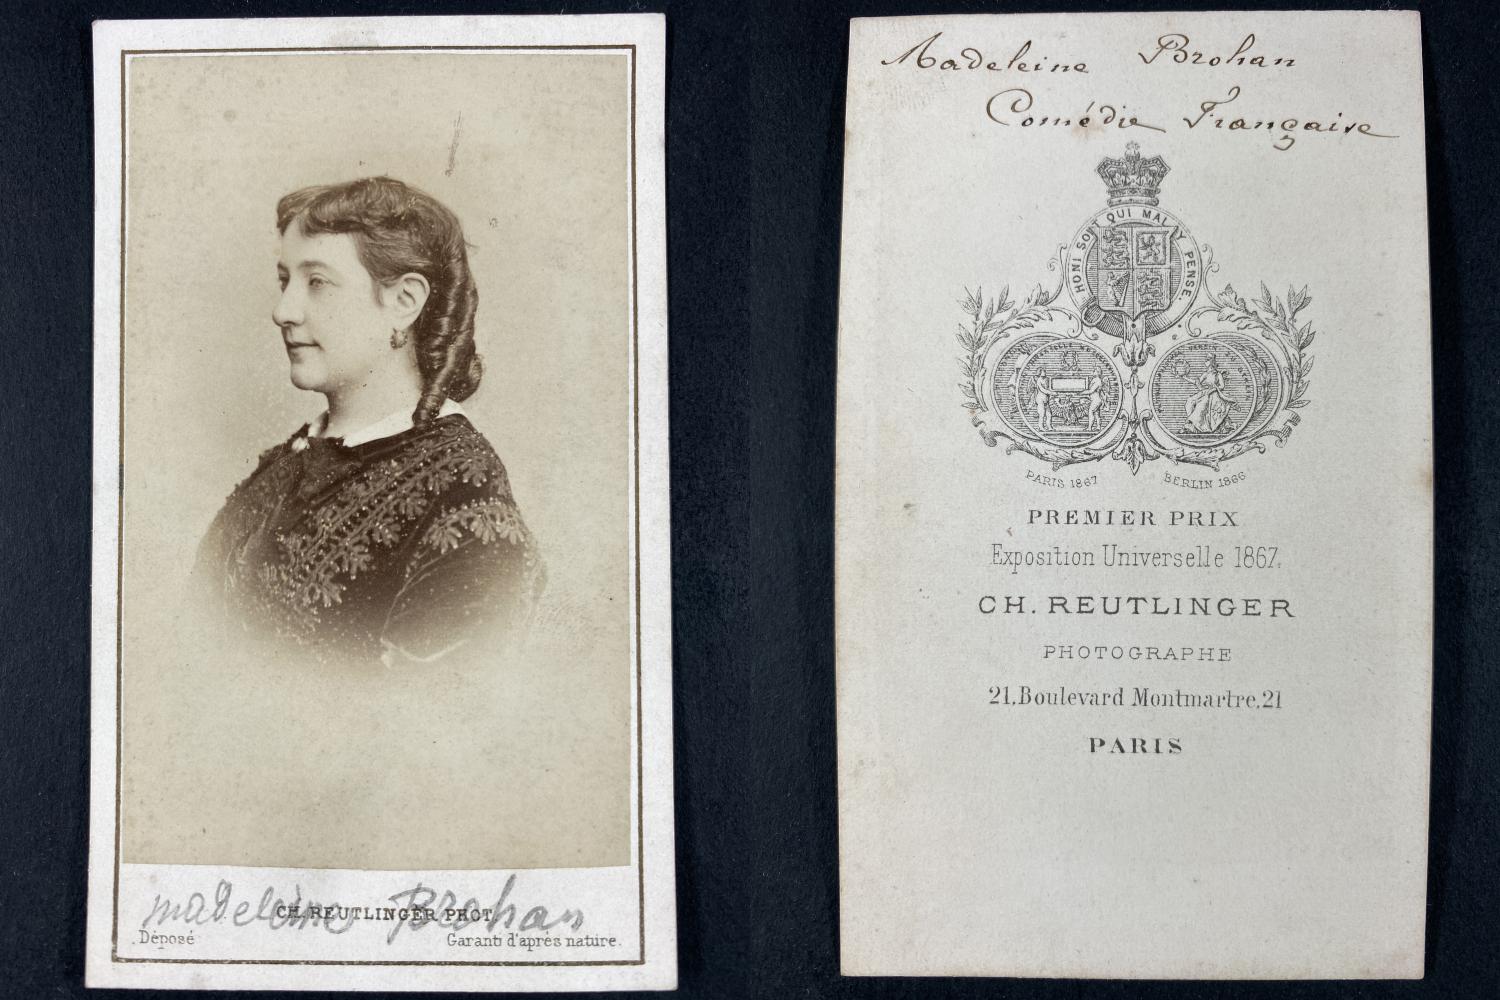 madeleine Brohan
CH. REUTLINGER PHOT
Déposé
Garanti d'après nature.
Madeleine Brohan
Comédie Française
HONI SOIT QUI MAL Y PENSE.
PARIS 1867
BERLIN 1866
PREMIER PRIX
Exposition Universelle 1867.
CH. REUTLINGER
PHOTOGRAPHE
21, Boulevard Montmartre, 21
PARIS